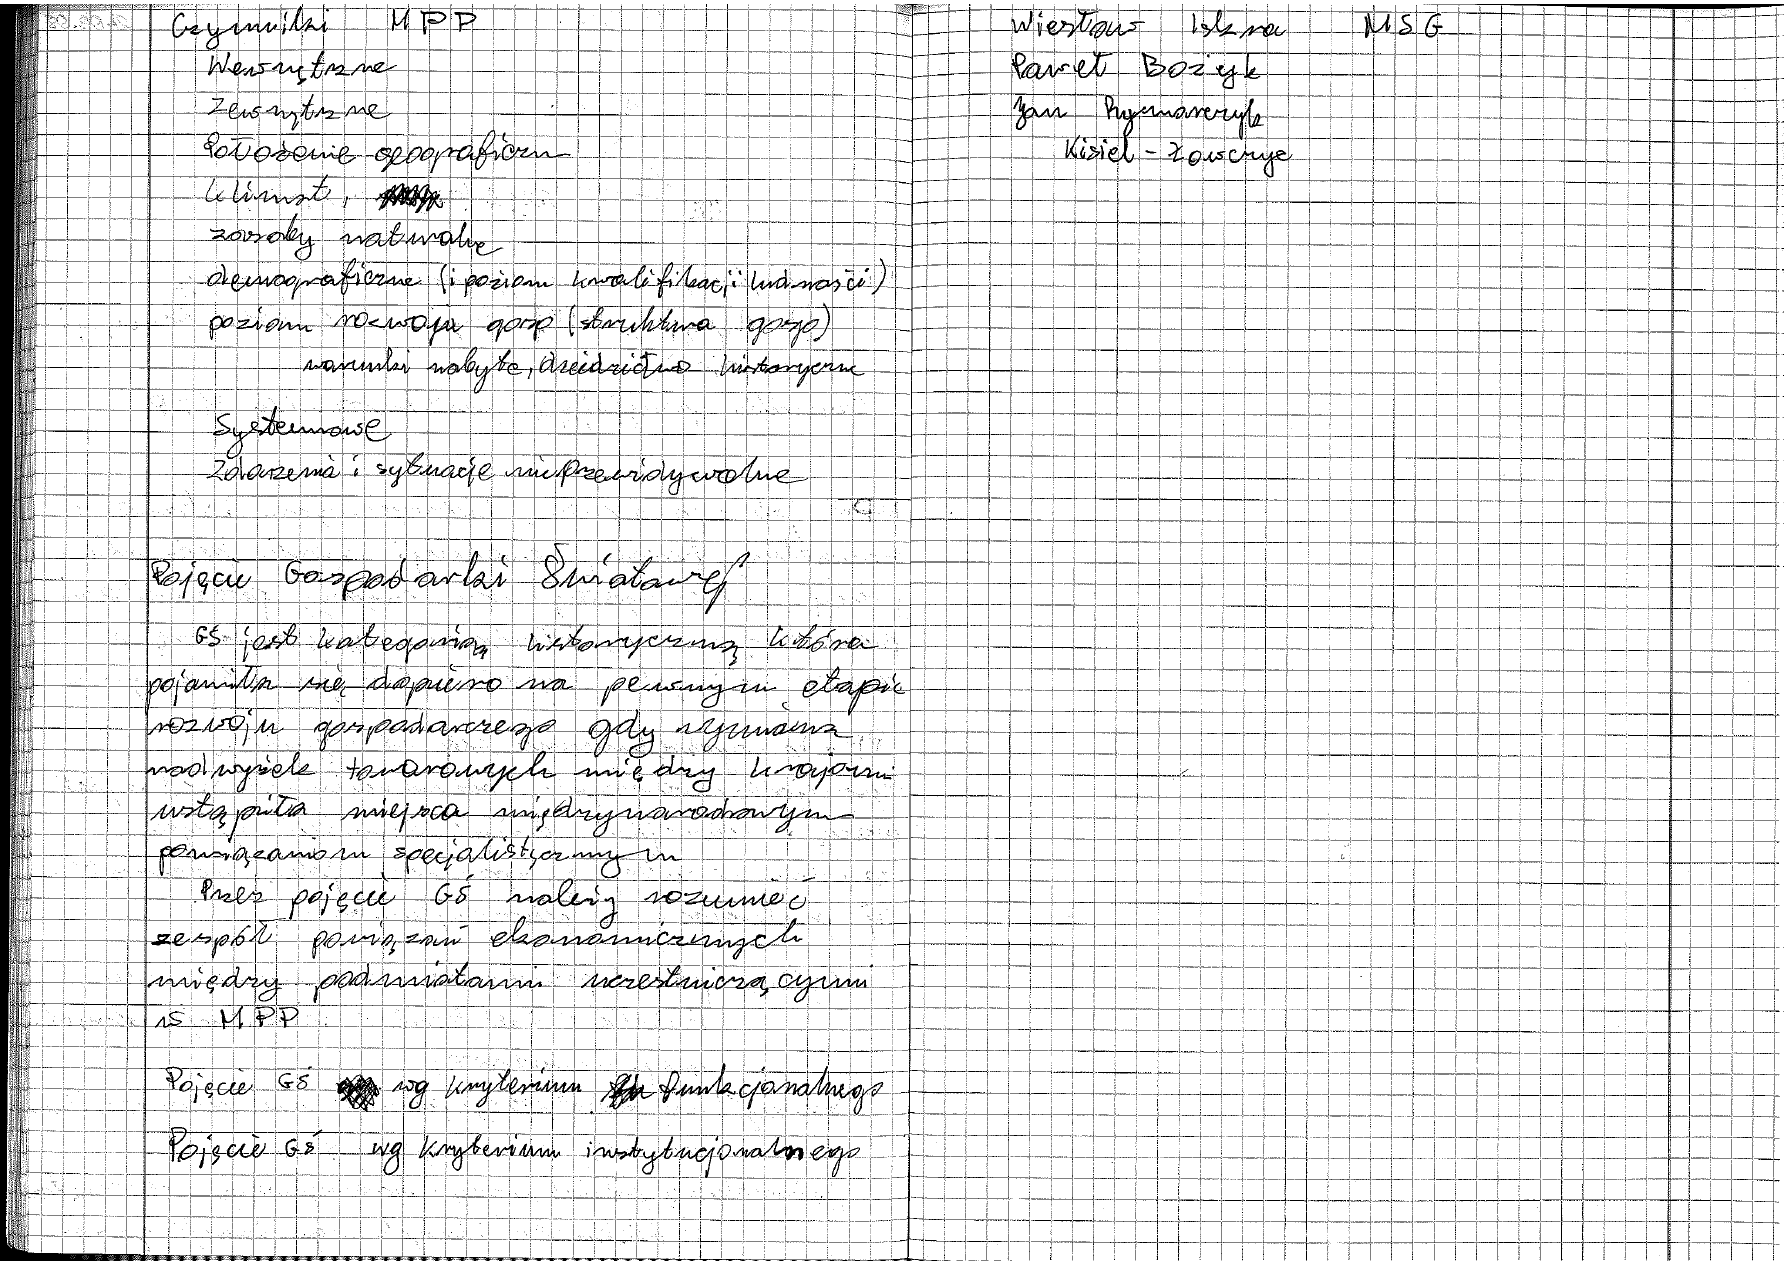 Czynniki MPP
Wewnętrzne
Zewnętrzne
Położenie geograficzn
klimat,
zasoby naturalne
demograficzne (i poziom kwalifikacji ludności)
poziom rozwoju gosp (struktura gosp)
warunki nabyte, dziedzictwo historyczne
Systemowe
Zdarzenia i sytuacje nieprzewidywalne
Pojęcie Gospodarki Światowej
GŚ jest kategorią historyczną która
pojawiła się dopiero na pewnym etapie
rozwoju gospodarczego gdy wymiana
nadwyżek towarowych między krajami
ustąpiła miejsca międzynarodowym
powiązaniom specjalistycznym
Przez pojęcie GŚ należy rozumieć
zespół powiązań ekonomicznych
między podmiotami uczestniczącymi
w MPP
Pojęcie GŚ wg kryterium funkcjonalnego
Pojęcie GŚ wg kryterium instytucjonalnego
Wiesław Iskra MSG
Paweł Bożyk
Jan Rymarczyk
Kisiel-Łowczyc